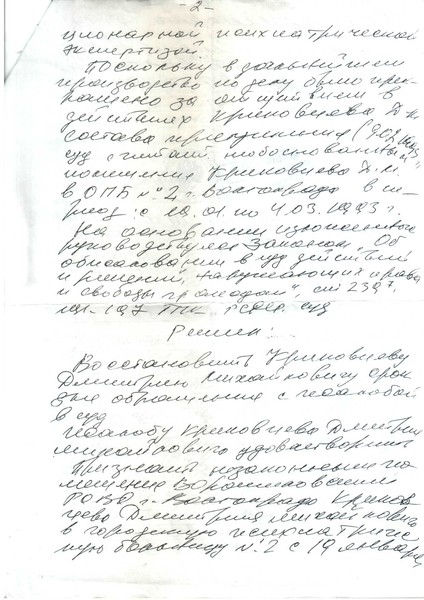 -2-
ционарной психиатрической
экспертизой.
Поскольку в дальнейшем
производство по делу было прек-
ращено за отсутствием в
действиях Криковцева Д.М.
состава преступления
суд считает необоснованным
помещение Криковцева Д.М.
в ОПБ №2 г. Волгограда в пе-
риод с 19.01. по 4.03.1993 г.
На основании изложенного
руководствуясь Законом "Об
обжаловании в суд действий
и решений, нарушающих права
и свободы граждан", ст 239⁷,
191-197 ГПК РСФСР, суд
Решил:
Восстановить Криковцеву
Дмитрию Михайловичу срок
для обращения с жалобой
в суд
Жалобу Криковцева Дмитрия
Михайловича удовлетворить
Признать незаконным по-
мещение Ворошиловским
РОВД г. Волгограда Криков-
цева Дмитрия Михайловича
в городскую психиатричес-
кую больницу №2 с 19 января